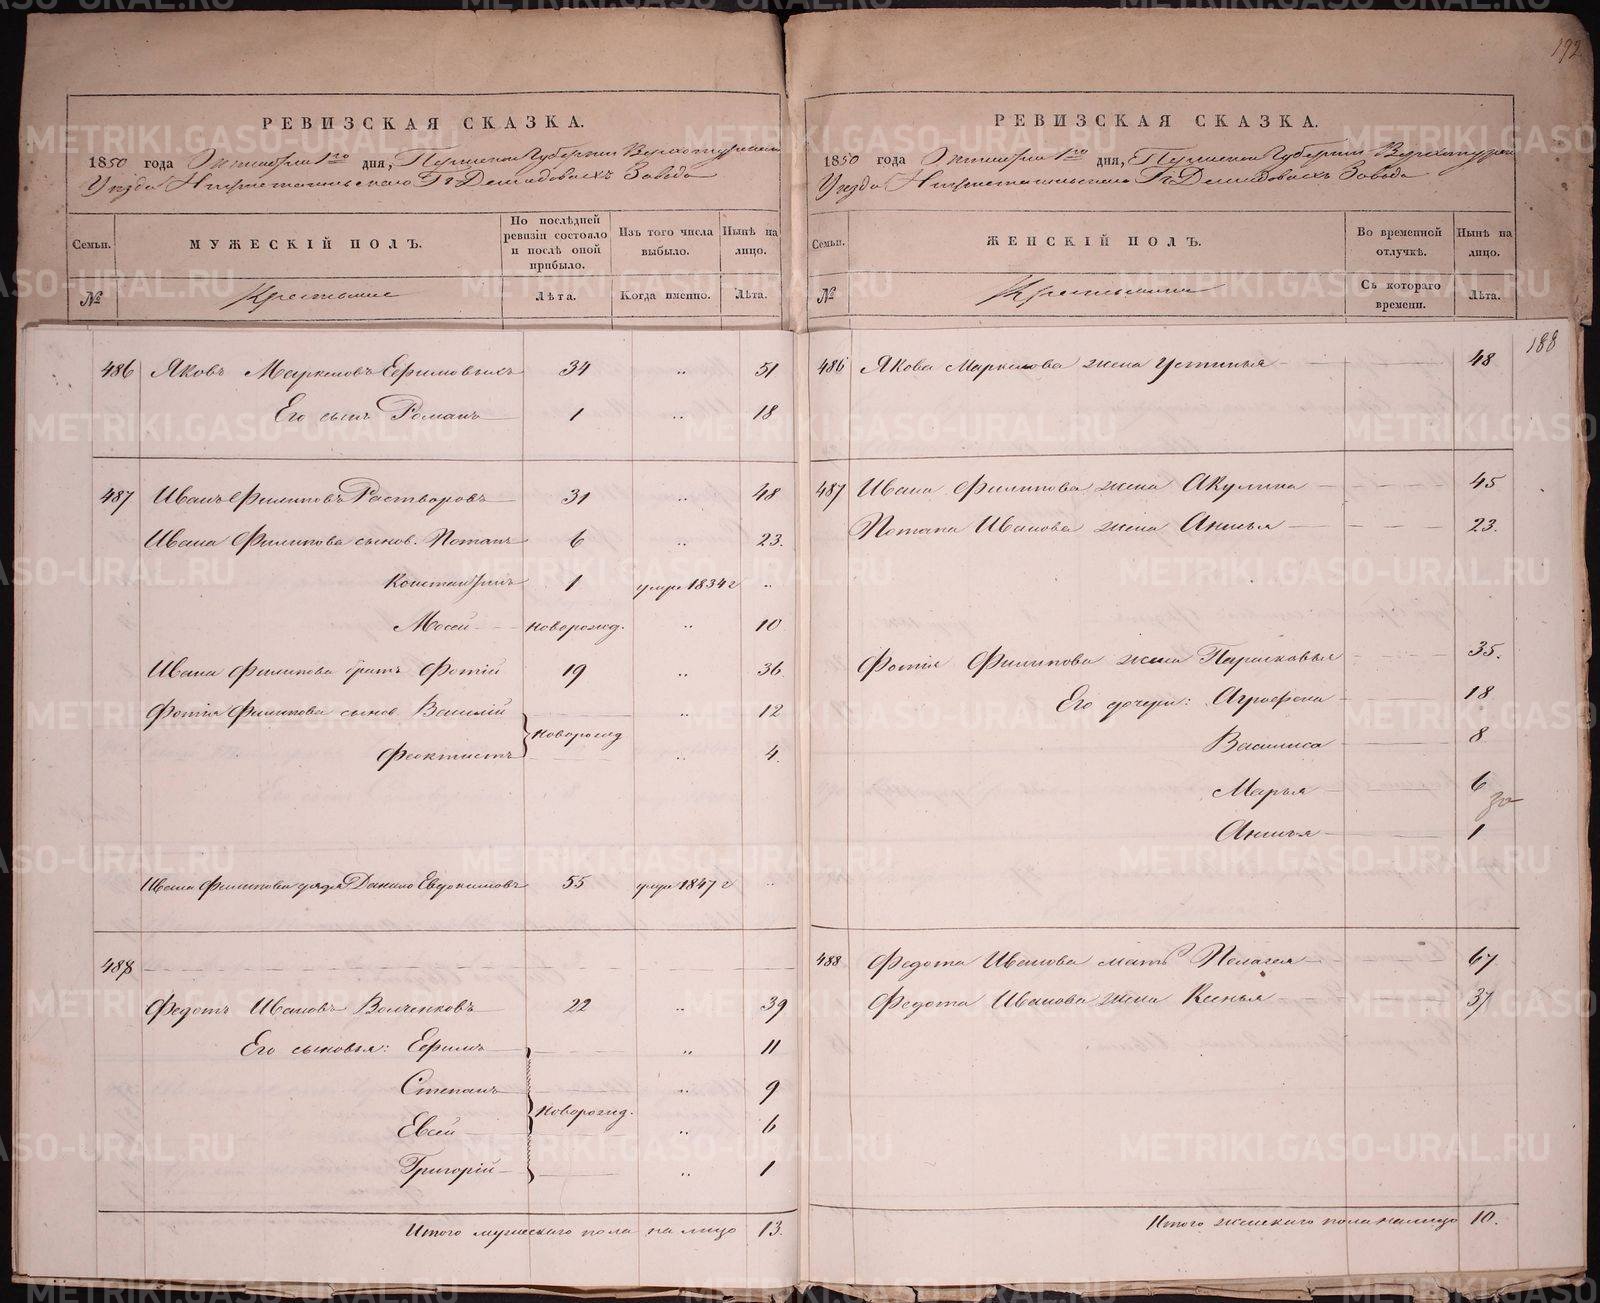 192
РЕВИЗСКАЯ СКАЗКА.
1850 года Октября 1го дня, Пермской Губернии Верхотурскаго
Уѣзда Нижнетагильскаго Гг Демидовыхъ Завода
Семьи.
МУЖЕСКІЙ ПОЛЪ.
По послѣдней ревизіи состояло и послѣ оной прибыло.
Изъ того числа выбыло.
Нынѣ на лицо.
№
Крестьяне
Лѣта.
Когда именно.
Лѣта.
486 Яковъ Маркеловъ Ефимовыхъ 34 „ 51
Его сынъ Романъ 1 „ 18
487 Иванъ Филиповъ Растворовъ 31 „ 48
Ивана Филипова сынов. Потапъ 6 „ 23.
Константинъ 1 умре 1834 г „
Мосей новорожд. „ 10
Ивана Филипова братъ Фотій 19 „ 36
Фотія Филипова сынов. Василій „ 12
новорожд
Феоктистъ „ 4.
Ивана Филипова дядя Данило Евдокимовъ 55 умре 1847 г „
488
Федотъ Ивановъ Волченковъ 22 „ 39
Его сыновья: Ефимъ „ 11
Степанъ „ 9
новорожд.
Евсей „ 6
Григорій „ 1
Итого мужескаго пола на лицо 13.
РЕВИЗСКАЯ СКАЗКА.
1850 года Октября 1го дня, Пермской Губернии Верхотурскаго
Уѣзда Нижнетагильскаго Гг Демидовыхъ Завода
Семьи.
ЖЕНСКІЙ ПОЛЪ.
Во временной отлучкѣ.
Нынѣ на лицо.
№
Крестьянки
Съ котораго времени.
Лѣта.
188
486 Якова Маркелова жена Устинья 48
487 Ивана Филипова жена Акулина 45
Потапа Иванова жена Анисья 23.
Фотія Филипова жена Парасковья 35.
Его дочери: Аграфена 18
Василиса 8
Марья 6
Анисья 1
488 Федота Иванова мать Пелагея 67
Федота Иванова жена Ксенья 37
Итого женскаго пола налицо 10.
METRIKI.GASO-URAL.RU